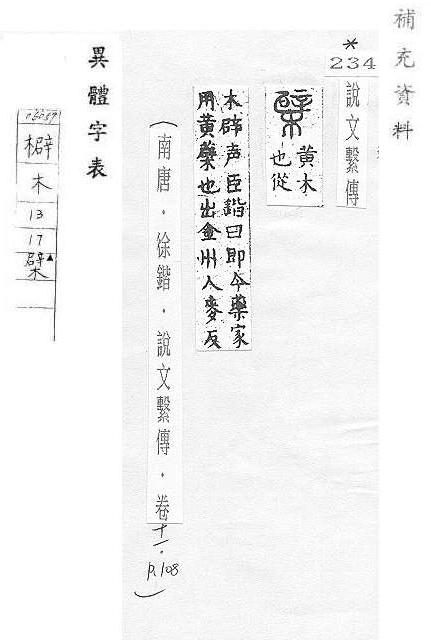 補充資料
*
234
說文繫傳
檗 黃木
也從
木辟声臣鍇曰即今藥家
用黃蘗也出金州人麥反
(南唐.徐鍇.說文繫傳.卷十一.p.108)
異體字表
檘
木
13
17
檗▲